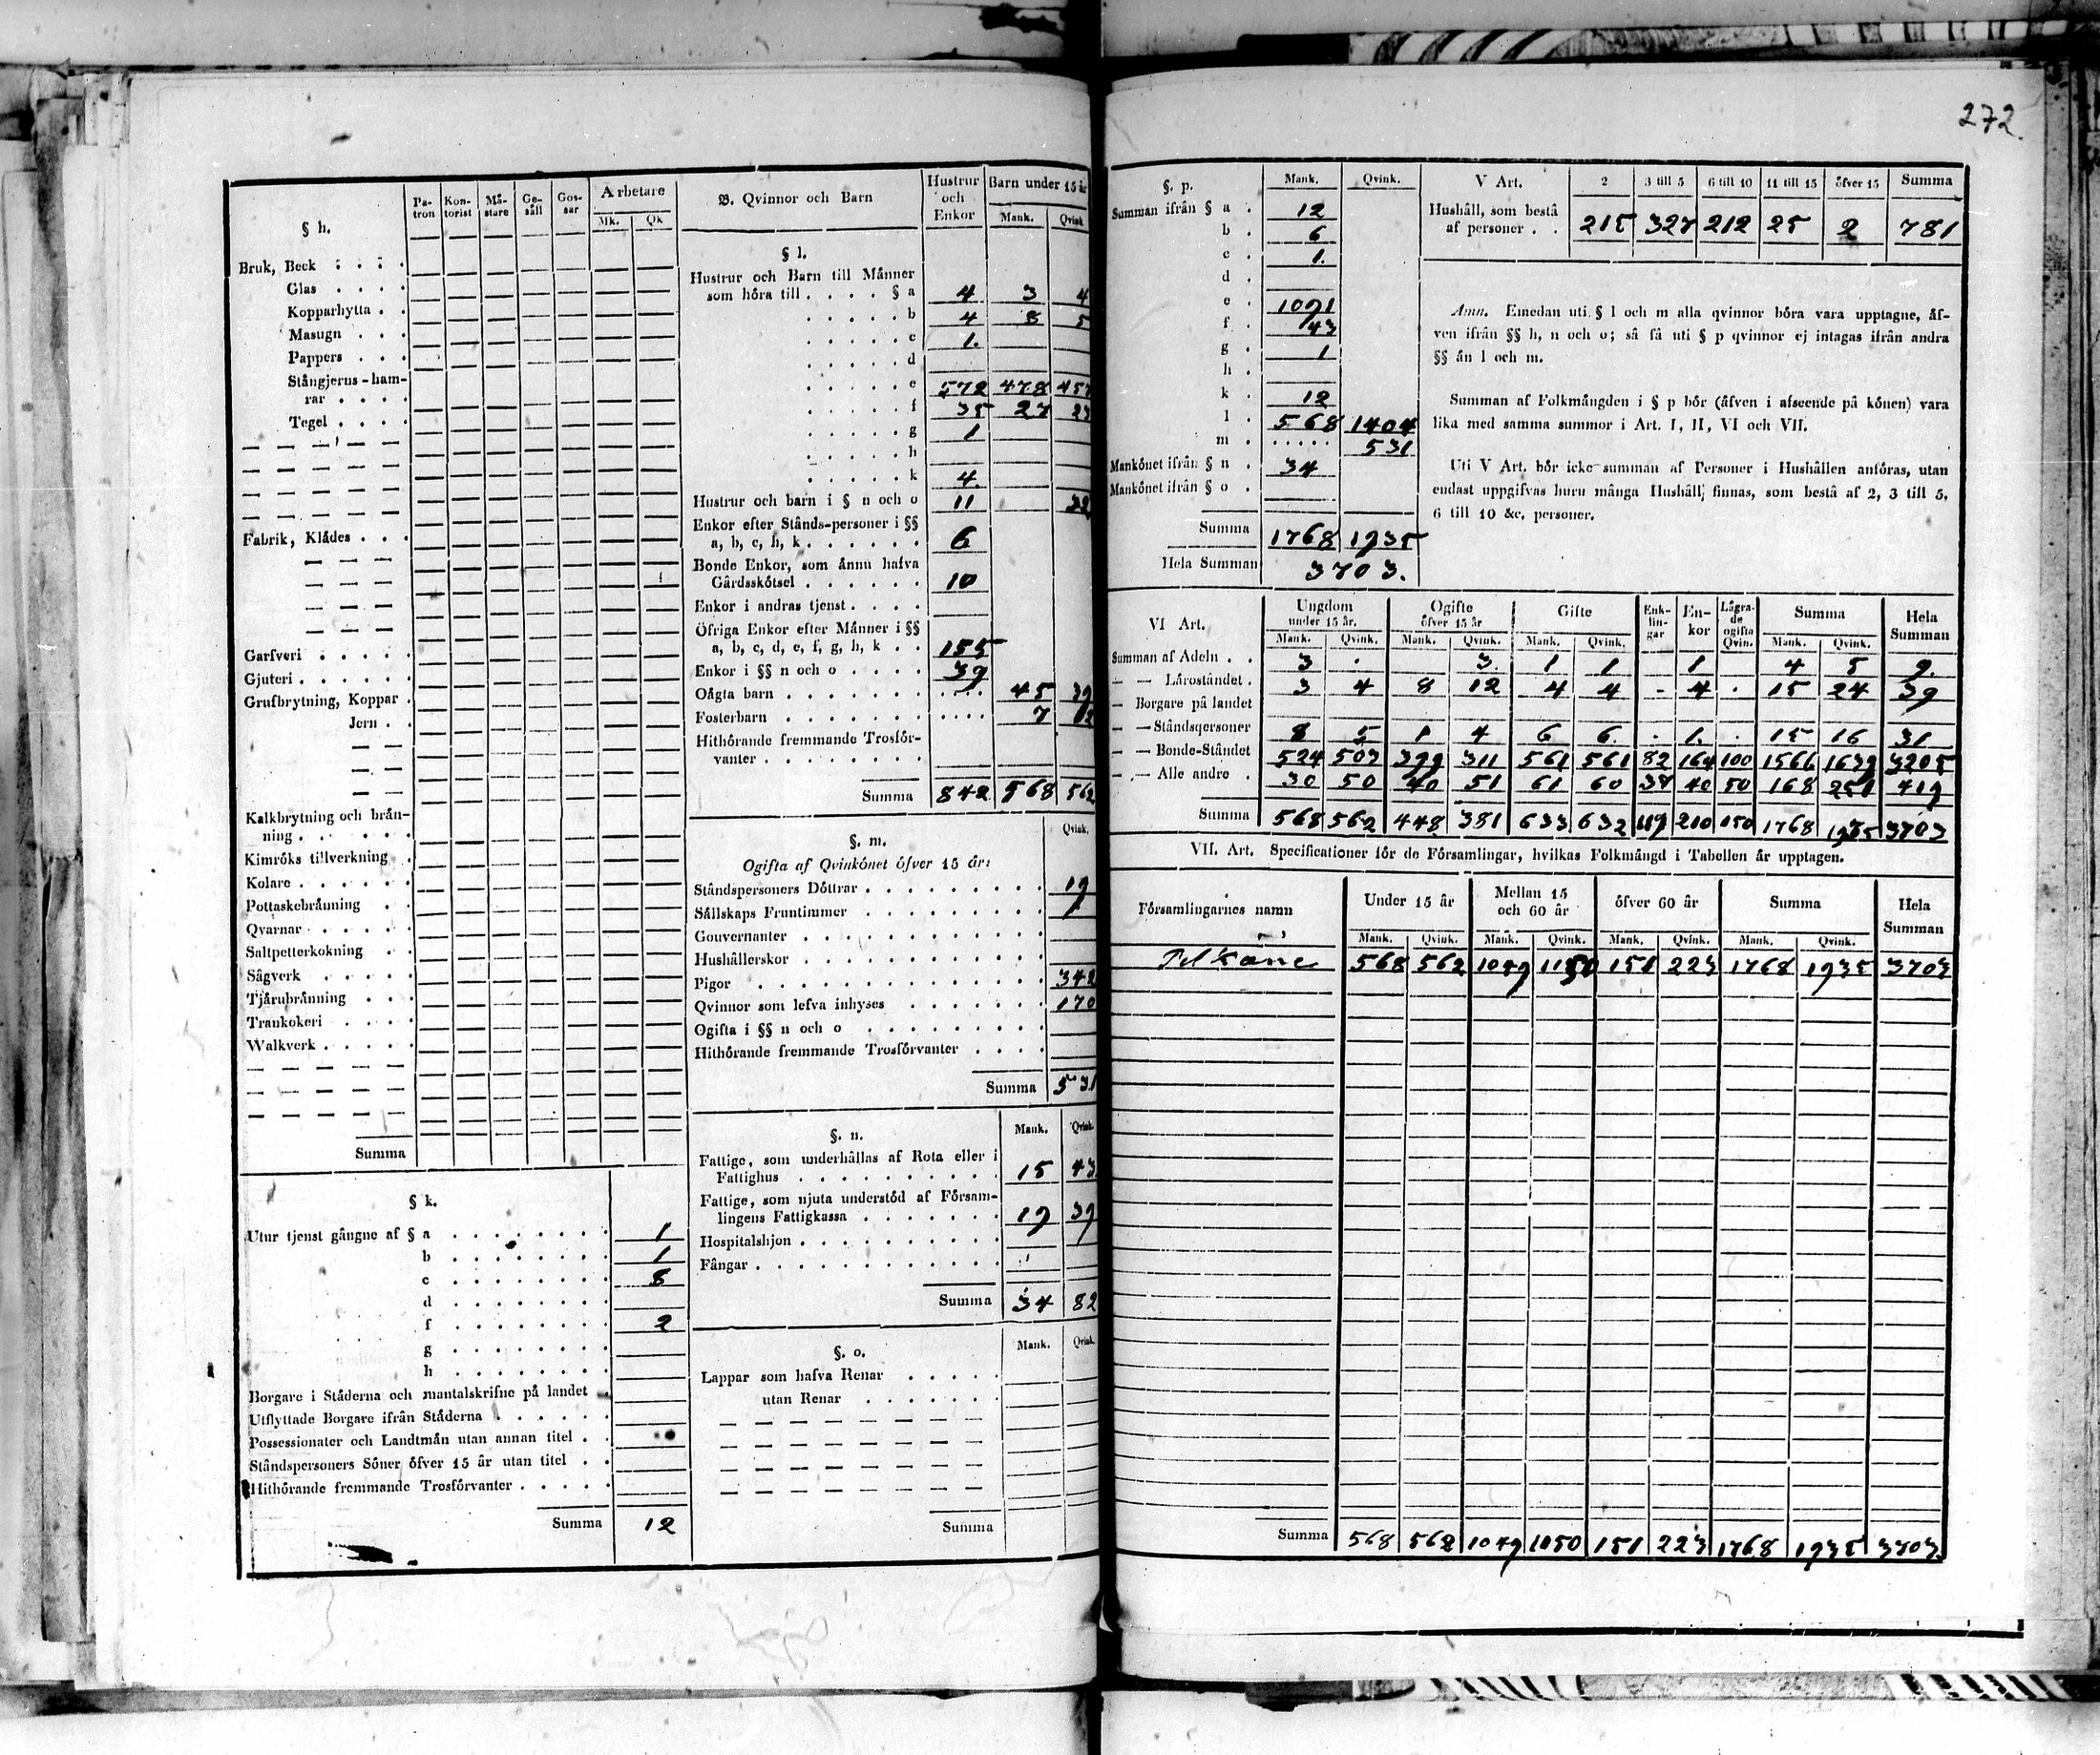 272.
§ h.
Patron Kontorist Måstare Gesäll Gossar Arbetare
Mk. Qk
Bruk, Beck
Glas
Kopparhytta
Masugn
Pappers
Stångjerns-ham-
rar
Tegel
Fabrik, Klådes
Garfveri
Gjuteri
Grufbrytning, Koppar
Jern
Kalkbrytning och brån-
ning
Kimróks tillverkning
Kolare
Pottaskebrånning
Qvarnar
Saltpetterkokning
Sågverk
Tjårubrånning
Trankokeri
Walkverk
Summa
§ k.
Utur tjenst gångne af § a 1
b 1
c 8
d
f 2
g
h
Borgare i Ståderna och mantalskrifne på landet
Utflyttade Borgare ifrån Ståderna
Possessionater och Landtmån utan annan titel
Ståndspersoners Sóner ófver 15 år utan titel
Hithórande fremmande Trosfórvanter
Summa 12
B. Qvinnor och Barn Hustrur och Enkor Barn under 15 år
Mank. Qvink
§ l.
Hustrur och Barn till Månner
som hóra till § a 4 3 4
b 4 8 5
c 1.
d
e 572 478 457
f 35 27 23
g 1
h
k 4
Hustrur och barn i § n och o 11 22
Enkor efter Stånds-personer i §§
a, b, c, h, k 6
Bonde Enkor, som ånnu hafva
Gårdsskótsel 10
Enkor i andras tjenst
Öfriga Enkor efter Månner i §§
a, b, c, d, e, f, g, h, k 155
Enkor i §§ n och o 39
Oågta barn 45 39
Fosterbarn 7 12
Hithórande fremmande Trosfór-
vanter
Summa 842 568 562
§. m. Qvink.
Ogifta af Qvinkónet ófver 15 år:
Ståndspersoners Dóttrar 19
Sållskaps Fruntimmer
Gouvernanter
Hushållerskor
Pigor 342
Qvinnor som lefva inhyses 170
Ogifta i §§ n och o
Hithórande fremmande Trosfórvanter
Summa 531
§. n. Mank. Qvink.
Fattige, som underhållas af Rota eller i
Fattighus 15 43
Fattige, som njuta understód af Fórsam-
lingens Fattigkassa 19 39
Hospitalshjon
Fångar
Summa 34 82
§. o. Mank. Qvink.
Lappar som hafva Renar
utan Renar
Summa
§. p. Mank. Qvink.
Summan ifrån § a 12
b 6
c 1.
d
e 1091
f 43
g 1
h
k 12
l 568 1404
m 531
Mankónet ifrån § n 34
Mankónet ifrån § o
Summa 1768 1935
Hela Summan 3703.
V Art. 2 3 till 5 6 till 10 11 till 15 öfver 15 Summa
Hushåll, som bestå
af personer 215 327 212 25 2 781
Anm. Emedan uti § l och m alla qvinnor bóra vara upptagne, åf-
ven ifrån §§ h, n och o; så få uti § p qvinnor ej intagas ifrån andra
§§ ån l och m.
Summan af Folkmångden i § p bór (åfven i afseende på kónen) vara
lika med samma summor i Art. I, II, VI och VII.
Uti V Art. bór icke summan af Personer i Hushållen anfóras, utan
endast uppgifvas huru många Hushåll finnas, som bestå af 2, 3 till 5,
6 till 10 &c. personer.
VI Art. Ungdom under 15 år. Ogifte öfver 15 år Gifte Enklingar Enkor Lågrade ogifta Qvin. Summa Hela Summan
Mank. Qvink. Mank. Qvink. Mank. Qvink. Mank. Qvink.
Summan af Adeln 3 . 3. 1 1 1 4 5 9.
— — Låroståndet 3 4 8 12 4 4 - 4 . 15 24 39
— Borgare på landet
— — Ståndsqersoner 8 5 1 4 6 6 . 1. . 15 16 31
— — Bonde-Ståndet 524 503 399 311 561 561 82 164 100 1566 1639 3205
— — Alle andre 30 50 40 51 61 60 37 40 50 168 251 419
Summa 568 562 448 381 633 632 119 210 150 1768 1935 3703
VII. Art. Specificationer fór de Fórsamlingar, hvilkas Folkmångd i Tabellen år upptagen.
Fórsamlingarnes namn Under 15 år Mellan 15 och 60 år öfver 60 år Summa Hela Summan
Mank. Qvink. Mank. Qvink. Mank. Qvink. Mank. Qvink.
Pelkäne 568 562 1049 1150 151 223 1768 1935 3703
Summa 568 562 1049 1050 151 223 1768 1935 3703.